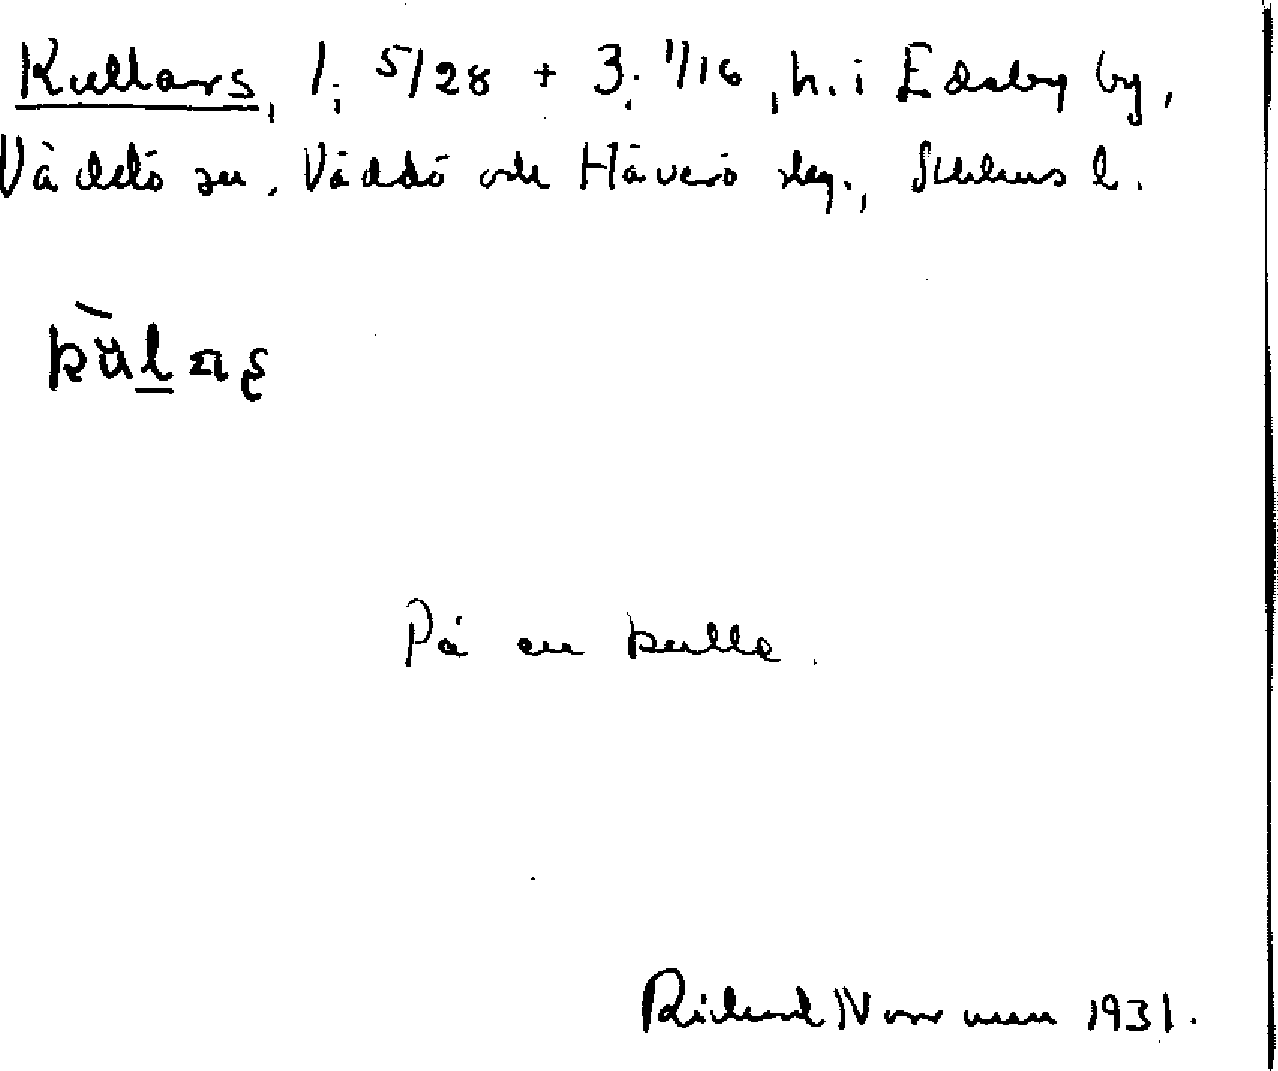 Kullars, 1; 5/28 + 3: 1/16, h. i Edsby by,
Väddö sn, Väddö och Häverö skg., Sthlms l.
kùlaṣ
På en kulle.
Richard Norrman 1931.